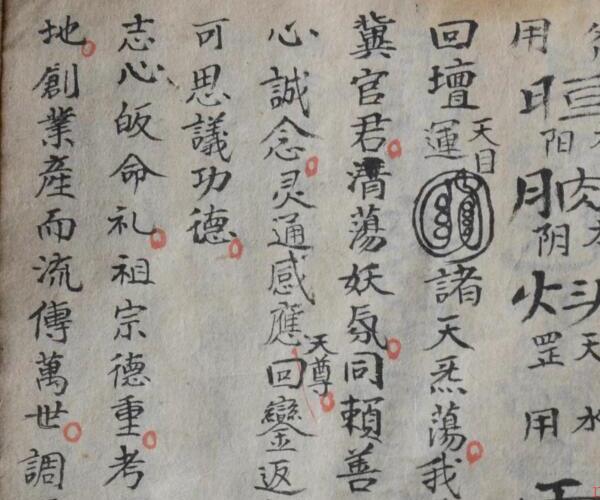 斗天水
用日阳月阴火罡用
回壇運天目諸天炁蕩我
冀官君蕩妖氛同頼善
心誠念灵通感應天尊回鑾返
可思議功德
志心皈命礼祖宗德重考
地創業產而流傳萬世調